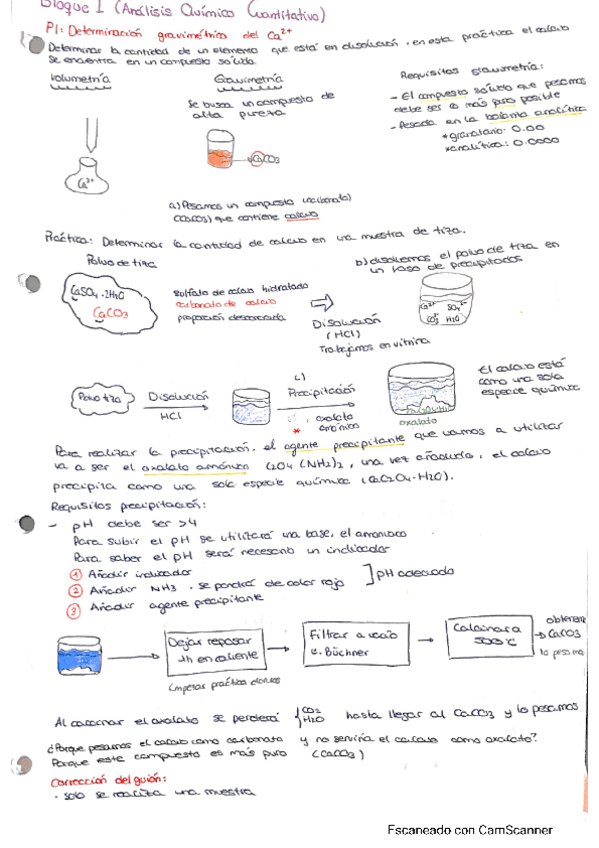 Bloque I (Análisis Químico Cuantitativo)
P1: Determinación gravimétrica del Ca²⁺
Determinar la cantidad de un elemento que está en disolución. en esta práctica el calcio
se encuentra en un compuesto sólido.
Volumetría
Gravimetría
Se busca un compuesto de
alta pureza
CaCO3
Ca²⁺
Requisitos gravimetría:
- El compuesto sólido que pesamos
debe ser lo más puro posible
- Pesada en la balanza analítica
*granatario: 0.00
*analítica: 0.0000
a) Pesamos un compuesto (carbonato)
(CaCO3) que contiene calcio
Práctica: Determinar la cantidad de calcio en una muestra de tiza.
Polvo de tiza
CaSO4·2H2O
CaCO3
sulfato de calcio hidratado
carbonato de calcio
proporción desconocida
Disolución
(HCl)
Trabajamos en vitrina
b) disolvemos el polvo de tiza en
un vaso de precipitados
Ca²⁺ SO4²⁻
CO3²⁻ H2O
Polvo tiza
Disolución
HCl
c)
Precipitación
oxalato
amónico
*
oxalato
El calcio está
como una sola
especie química
Para realizar la precipitación, el agente precipitante que vamos a utilizar
va a ser el oxalato amónico C2O4(NH2)2, una vez añadido, el calcio
precipita como una sola especie química (CaC2O4·H2O).
Requisitos precipitación:
- pH debe ser >4
Para subir el pH se utilizará una base, el amoniaco
Para saber el pH será necesario un indicador
1 Añadir indicador
2 Añadir NH3. se pondrá de color rojo
] pH adecuado
3 Añadir agente precipitante
Dejar reposar
1h en caliente
Filtrar a vacío
Büchner
Calcinar a
500ºC
CaCO3
lo pesamos
Empezar práctica cloruros
Al calcinar el oxalato se perderá { CO2 H2O hasta llegar al CaCO3 y lo pesamos
¿Porque pesamos el calcio como carbonato y no serviría el calcio como oxalato?
Porque este compuesto es más puro (CaCO3)
Corrección del guión:
· solo se realiza una muestra
Escaneado con CamScanner